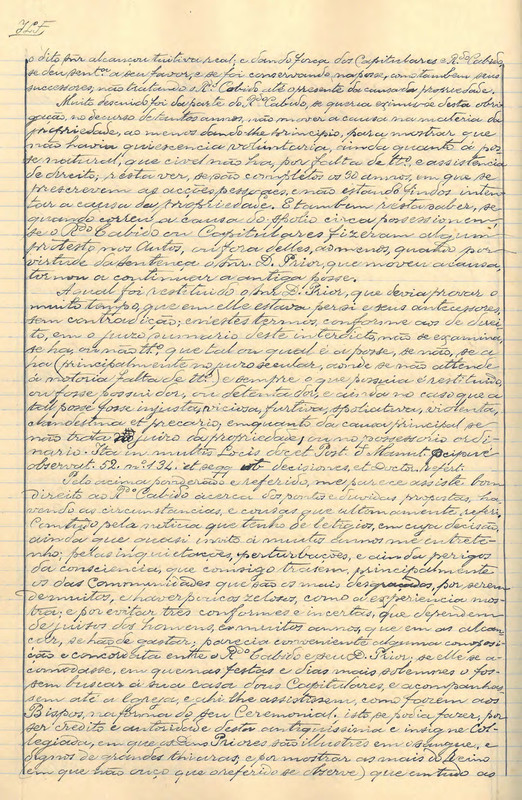 o dito snr alcançou tuitiva real; e dando força dos Capitulares e Rdo Cabido,
se deu sentça a seu favor, e se foi conservando na posse, como tambem seus
successores, não tratando o Rdo Cabido até o presente da causa da propriedade.
Muito descuido foi da parte do Rdo Cabido, se queria eximir-se desta obri-
gação, no decurso de tantos annos, não mover a causa na materia da
propriedade, ao menos dando-lhe principio, para mostrar que
não havia quiescencia voluntaria, ainda quanto á pos-
se natural, que civel não ha, por falta de ttº, e assistencia
de direito; resta ver, se são completos os 30 annos, em que se
prescrevem as acções pessoaes, e não estando findos inten-
tar a causa da propriedade. E tambem resta saber, se
quando correu a causa do spolio circa possessionem
se o Rdo Cabido ou Capitulares fizeram algum
protesto nos Autos, ou fora delles, ao menos, quando por
virtude da sentença o snr D. Prior, que moveu a causa,
tornou a continuar a antiga posse.
A qual foi restituido o snr D. Prior, que devia provar o
muito tempo, que em elle estava per si e seus antecessores,
sem contradição; e nestes termos, conforme aos de direi-
to, em o juizo sumario deste interdicto, não se examina,
se ha, ou não ttº, que tal ou qual é a posse, se não, se a
ha (principalmente no juro secular, aonde se não attende
á notoria falta de ttº) e sempre o que possuia é restituido,
ou fosse possuidor, ou detentador, e ainda no caso que a
tal posse fosse injusta, viciosa, furtiva, spoliativa, violenta,
clandestina et precario, emquanto da causa principal se
não trata juizo da propriedade, ou no possessorio ordi-
nario. Ita in multis Locis docet Post. de Manut.
observat. 52. nº 134. et seqq decisiones, et Doctor. refert.
Pelo acima ponderado e referido, me parece assiste bom
direito ao Rdo Cabido ácerca dos pontos e duvidas propostas, ha-
vendo as circunstancias, e cousas que ultimamente referi.
Comtudo pela noticia que tenho de letigios, em cuja decisão,
ainda que quasi invito á muitos annos me entrete-
nho; pelas inquietações, perturbações, e ainda perigos
da consciencia, que comsigo trasem, principalmente
os das Communidades que são os mais desgraçados, por serem
de muitos, e haver poucos zelosos, como a experiencia mos-
tra; e por evitar três conformes e incertas, que dependem
de juisos dos homens, e muitos annos, que em as alcan-
çar, se hão de gastar; parecia conveniente alguma composi-
ção e concordata entre o Rdo Cabido e seu D. Prior, se elle se a-
comodasse, em que nas festas e dias mais solemnes o fos-
sem buscar á sua casa dous Capitulares, e acompanhas-
sem até a Igreja, e ahi lhe assistissem, como fazem aos
Bispos, na forma do seu Ceremonial. isto se podia fazer, por
ser credito e autoridade desta antiquissima e insigne Col-
legiada, em que os Dons Priores são illustres em sangue, e
dignos de grandes thiaras; e por mostrar as mais do Reino
em que não ouço que o referido se observe) que em tudo as